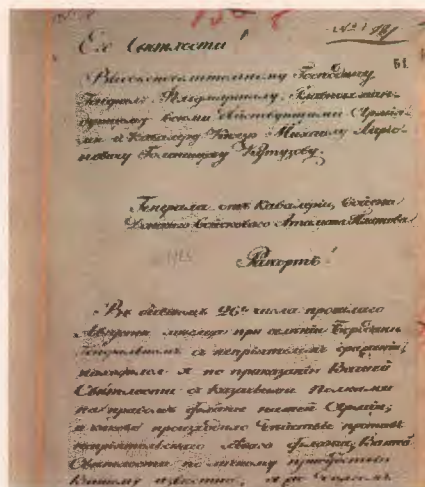 Его Светлости!
61
Высокоповелительному Господину
Генерал Фельдмаршалу, Главнокоман-
дующему всеми действующими Армия-
ми и Кавалеру Князю Михаилу Ларио-
новичу Голенищеву Кутузову.
Генерала отъ Кавалеріи, Войска
Донскаго Войсковаго Атамана Платова
Рапортъ!
Въ бывшемъ 26го числа прошлаго
Августа месяца при селеніи Бородине
съ непріятелемъ сраженіи;
находился я по приказанію Вашей
Светлости съ Казачьими Полками
на правомъ фланге нашей Арміи;
и какое производило действие противъ
непріятельскаго леваго фланга, Вашей
Светлости по личному присутствію
Вашему известно,